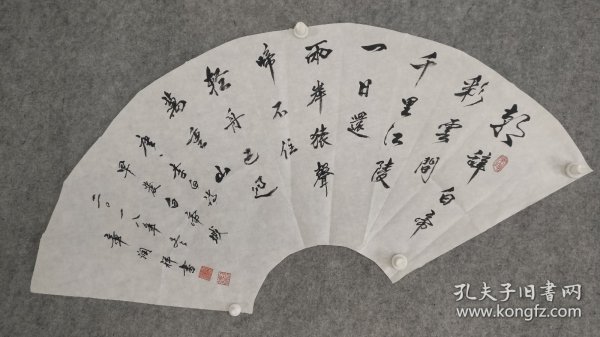 朝辞白帝
彩雲間
千里江陵
一日還
两岸猿聲
啼不住
轻舟已过
萬重山
唐、李白诗
早發白帝城
二〇一八年冬
润祥书
孔夫子旧书网
www.kongfz.com